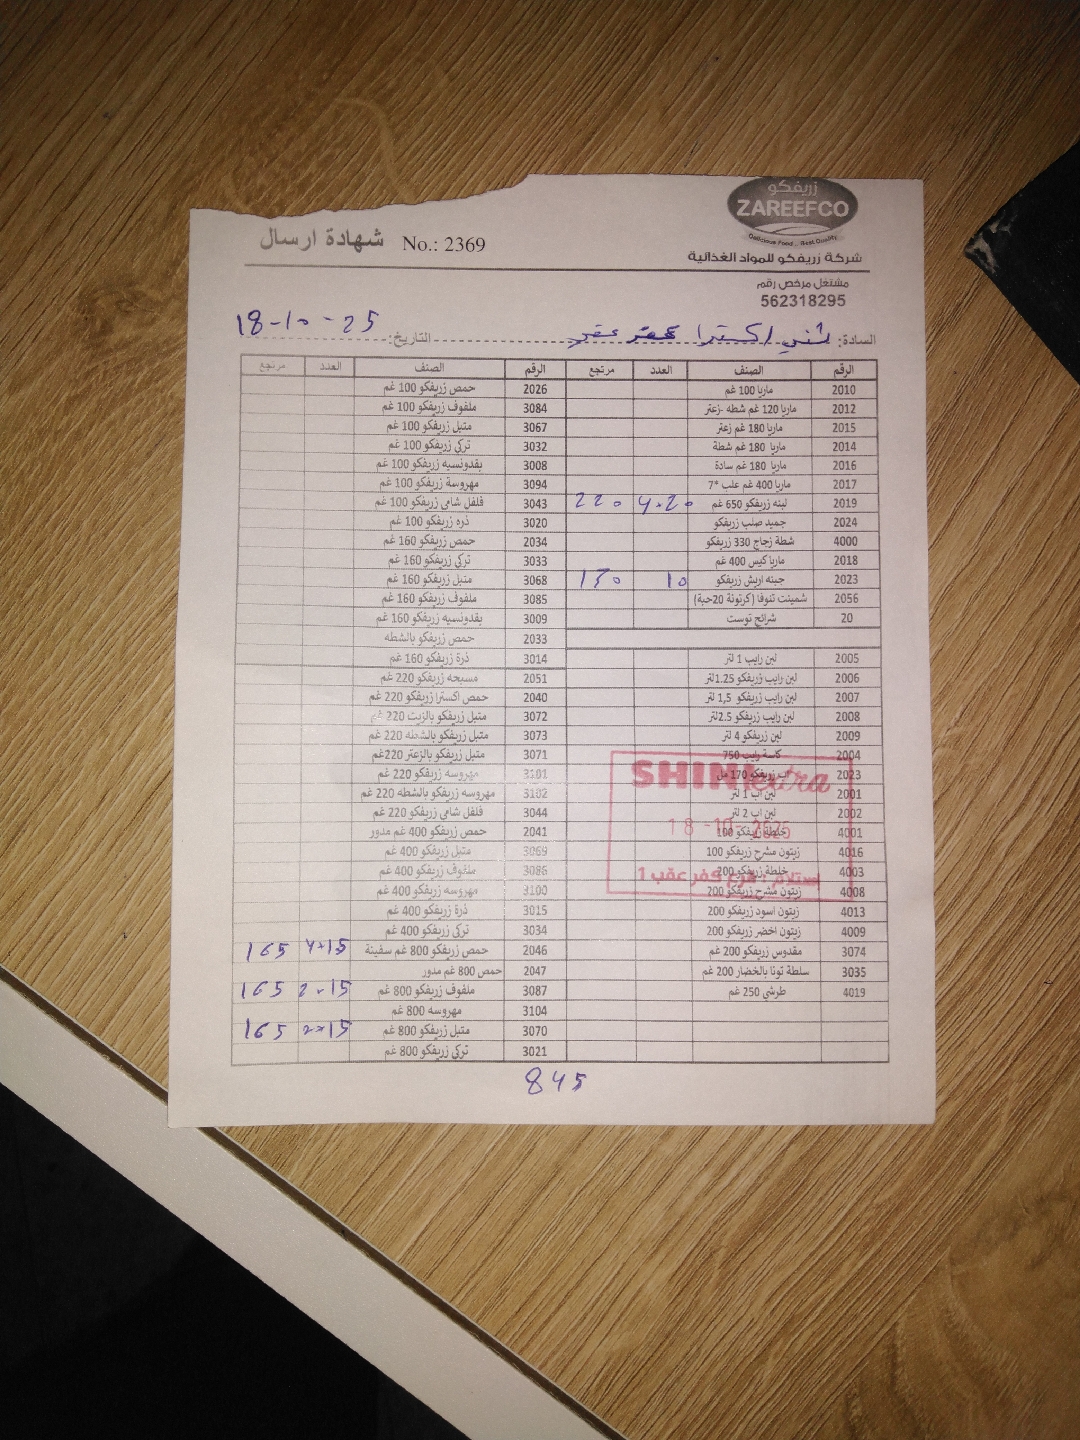 زريفكو
ZAREEFCO
Delicious Food .. Best Quality
شهادة ارسال No.: 2369
شركة زريفكو للمواد الغذائية
مشتغل مرخص رقم
562318295
السادة: شني اكسترا كفر عقب التاريخ: 18-10-25
الرقم الصنف العدد مرتجع الرقم الصنف العدد مرتجع
2010 ماريا 100 غم 2026 حمص زريفكو 100 غم
2012 ماريا 120 غم شطه -زعتر 3084 ملفوف زريفكو 100 غم
2015 ماريا 180 غم زعتر 3067 متبل زريفكو 100 غم
2014 ماريا 180 غم شطة 3032 تركي زريفكو 100 غم
2016 ماريا 180 غم سادة 3008 بقدونسيه زريفكو 100 غم
2017 ماريا 400 غم علب *7 3094 مهروسة زريفكو 100 غم
2019 لبنه زريفكو 650 غم 220 3043 فلفل شامي زريفكو 100 غم
2024 جميد صلب زريفكو 3020 ذره زريفكو 100 غم
4000 شطة زجاج 330 زريفكو 2034 حمص زريفكو 160 غم
2018 ماريا كيس 400 غم 3033 تركي زريفكو 160 غم
2023 جبنه اريش زريفكو 10 130 3068 متبل زريفكو 160 غم
2056 شمينت تنوفا (كرتونة 20حبة) 3085 ملفوف زريفكو 160 غم
20 شرائح توست 3009 بقدونسيه زريفكو 160 غم
2033 حمص زريفكو بالشطه
2005 لبن رايب 1 لتر 3014 ذرة زريفكو 160 غم
2006 لبن رايب زريفكو 1.25لتر 2051 مسبحه زريفكو 220 غم
2007 لبن رايب زريفكو 1,5 لتر 2040 حمص اكسترا زريفكو 220 غم
2008 لبن رايب زريفكو 2.5لتر 3072 متبل زريفكو بالزيت 220 غم
2009 لبن زريفكو 4 لتر 3073 متبل زريفكو بالشطه 220 غم
2004 كاسة رايب 750 3071 متبل زريفكو بالزعتر 220غم
2023 زريفكو 170 مل 3101 مهروسه زريفكو 220 غم
2001 لبن اب 1 لتر 3102 مهروسه زريفكو بالشطه 220 غم
2002 لبن اب 2 لتر 3044 فلفل شامي زريفكو 220 غم
4001 خلطة زريفكو 100 2041 حمص زريفكو 400 غم مدور
4016 زيتون مشرح زريفكو 100 3069 متبل زريفكو 400 غم
4003 خلطة زريفكو 200 3086 ملفوف زريفكو 400 غم
4008 زيتون مشرح زريفكو 200 3100 مهروسه زريفكو 400 غم
4013 زيتون اسود زريفكو 200 3015 ذرة زريفكو 400 غم
4009 زيتون اخضر زريفكو 200 3034 تركي زريفكو 400 غم
3074 مقدوس زريفكو 200 غم 2046 حمص زريفكو 800 غم سفينة 165
3035 سلطة تونا بالخضار 200 غم 2047 حمص 800 غم مدور
4019 طرشي 250 غم 3087 ملفوف زريفكو 800 غم 165
3104 مهروسه 800 غم
3070 متبل زريفكو 800 غم 2×15 165
3021 تركي زريفكو 800 غم
845
SHINI extra
18 -10- 2025
استلام : فرع كفر عقب 1